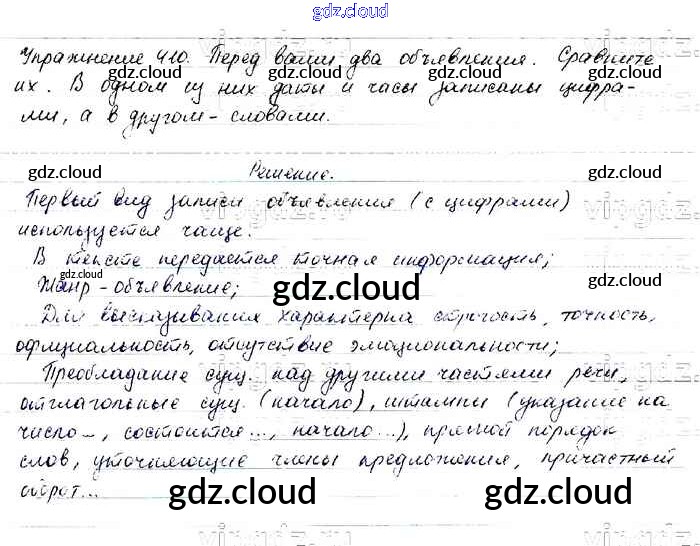 gdz.cloud
Упражнение 410. Перед вами два объявления. Сравните
их. В одном из них даты и часы записаны цифра-
ми, а в другом - словами.
Решение.
Первый вид записи объявления (с цифрами)
используется чаще.
В тексте передается точная информация;
Жанр - объявление;
Для высказывания характерна строгость, точность,
официальность, отсутствие эмоциональности;
Преобладание сущ. над другими частями речи,
отглагольные сущ. (начало), штампы (указание на
число -, состоится ..., начало ...), прямой порядок
слов, уточняющие члены предложения, причастный
оборот...
gdz.cloud gdz.cloud gdz.cloud